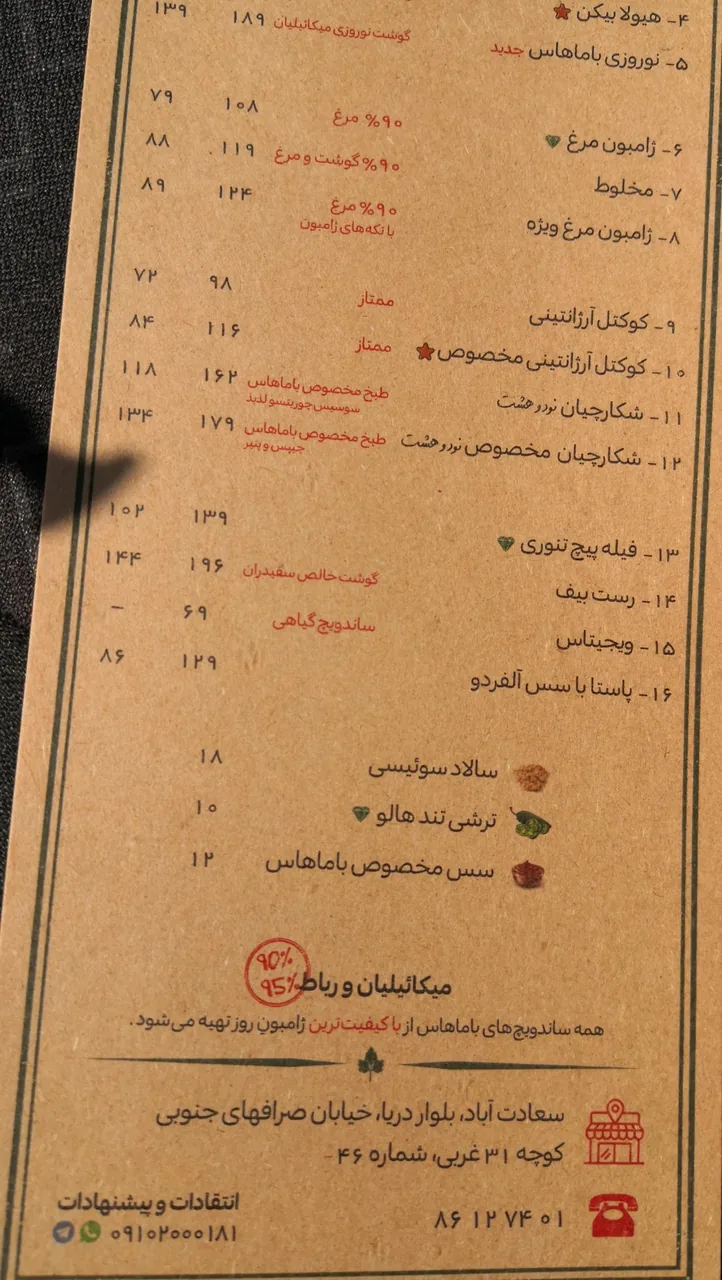 ۴- هیولا بیکن ۱۸۹ ۱۳۹
۵- نوروزی باماهاس جدید گوشت نوروزی میکائیلیان
۶- ژامبون مرغ ۹۰% مرغ ۱۰۸ ۷۹
۷- مخلوط ۹۰% گوشت و مرغ ۱۱۹ ۸۸
۸- ژامبون مرغ ویژه ۹۰% مرغ ۱۲۴ ۸۹
با تکه‌های ژامبون
۹- کوکتل آرژانتینی ممتاز ۹۸ ۷۲
۱۰- کوکتل آرژانتینی مخصوص ممتاز ۱۱۶ ۸۴
۱۱- شکارچیان نود و هشت طبخ مخصوص باماهاس ۱۶۲ ۱۱۸
سوسیس چوریتسو لذید
۱۲- شکارچیان مخصوص نود و هشت طبخ مخصوص باماهاس ۱۷۹ ۱۳۴
چیپس و پنیر
۱۳- فیله پیچ تنوری ۱۳۹ ۱۰۲
۱۴- رست بیف گوشت خالص سفیدران ۱۹۶ ۱۴۴
۱۵- ویجیتاس ساندویچ گیاهی ۶۹ –
۱۶- پاستا با سس آلفردو ۱۲۹ ۸۶
سالاد سوئیسی ۱۸
ترشی تند هالو ۱۰
سس مخصوص باماهاس ۱۲
میکائیلیان و رباط 90% 95%
همه ساندویچ‌های باماهاس از با کیفیت‌ترین ژامبونِ روز تهیه می‌شود.
سعادت آباد، بلوار دریا، خیابان صرافهای جنوبی
کوچه ۳۱ غربی، شماره ۴۶
۸۶ ۱۲ ۷۴ ۰۱
انتقادات و پیشنهادات
۰۹۱۰۲۰۰۰۱۸۱